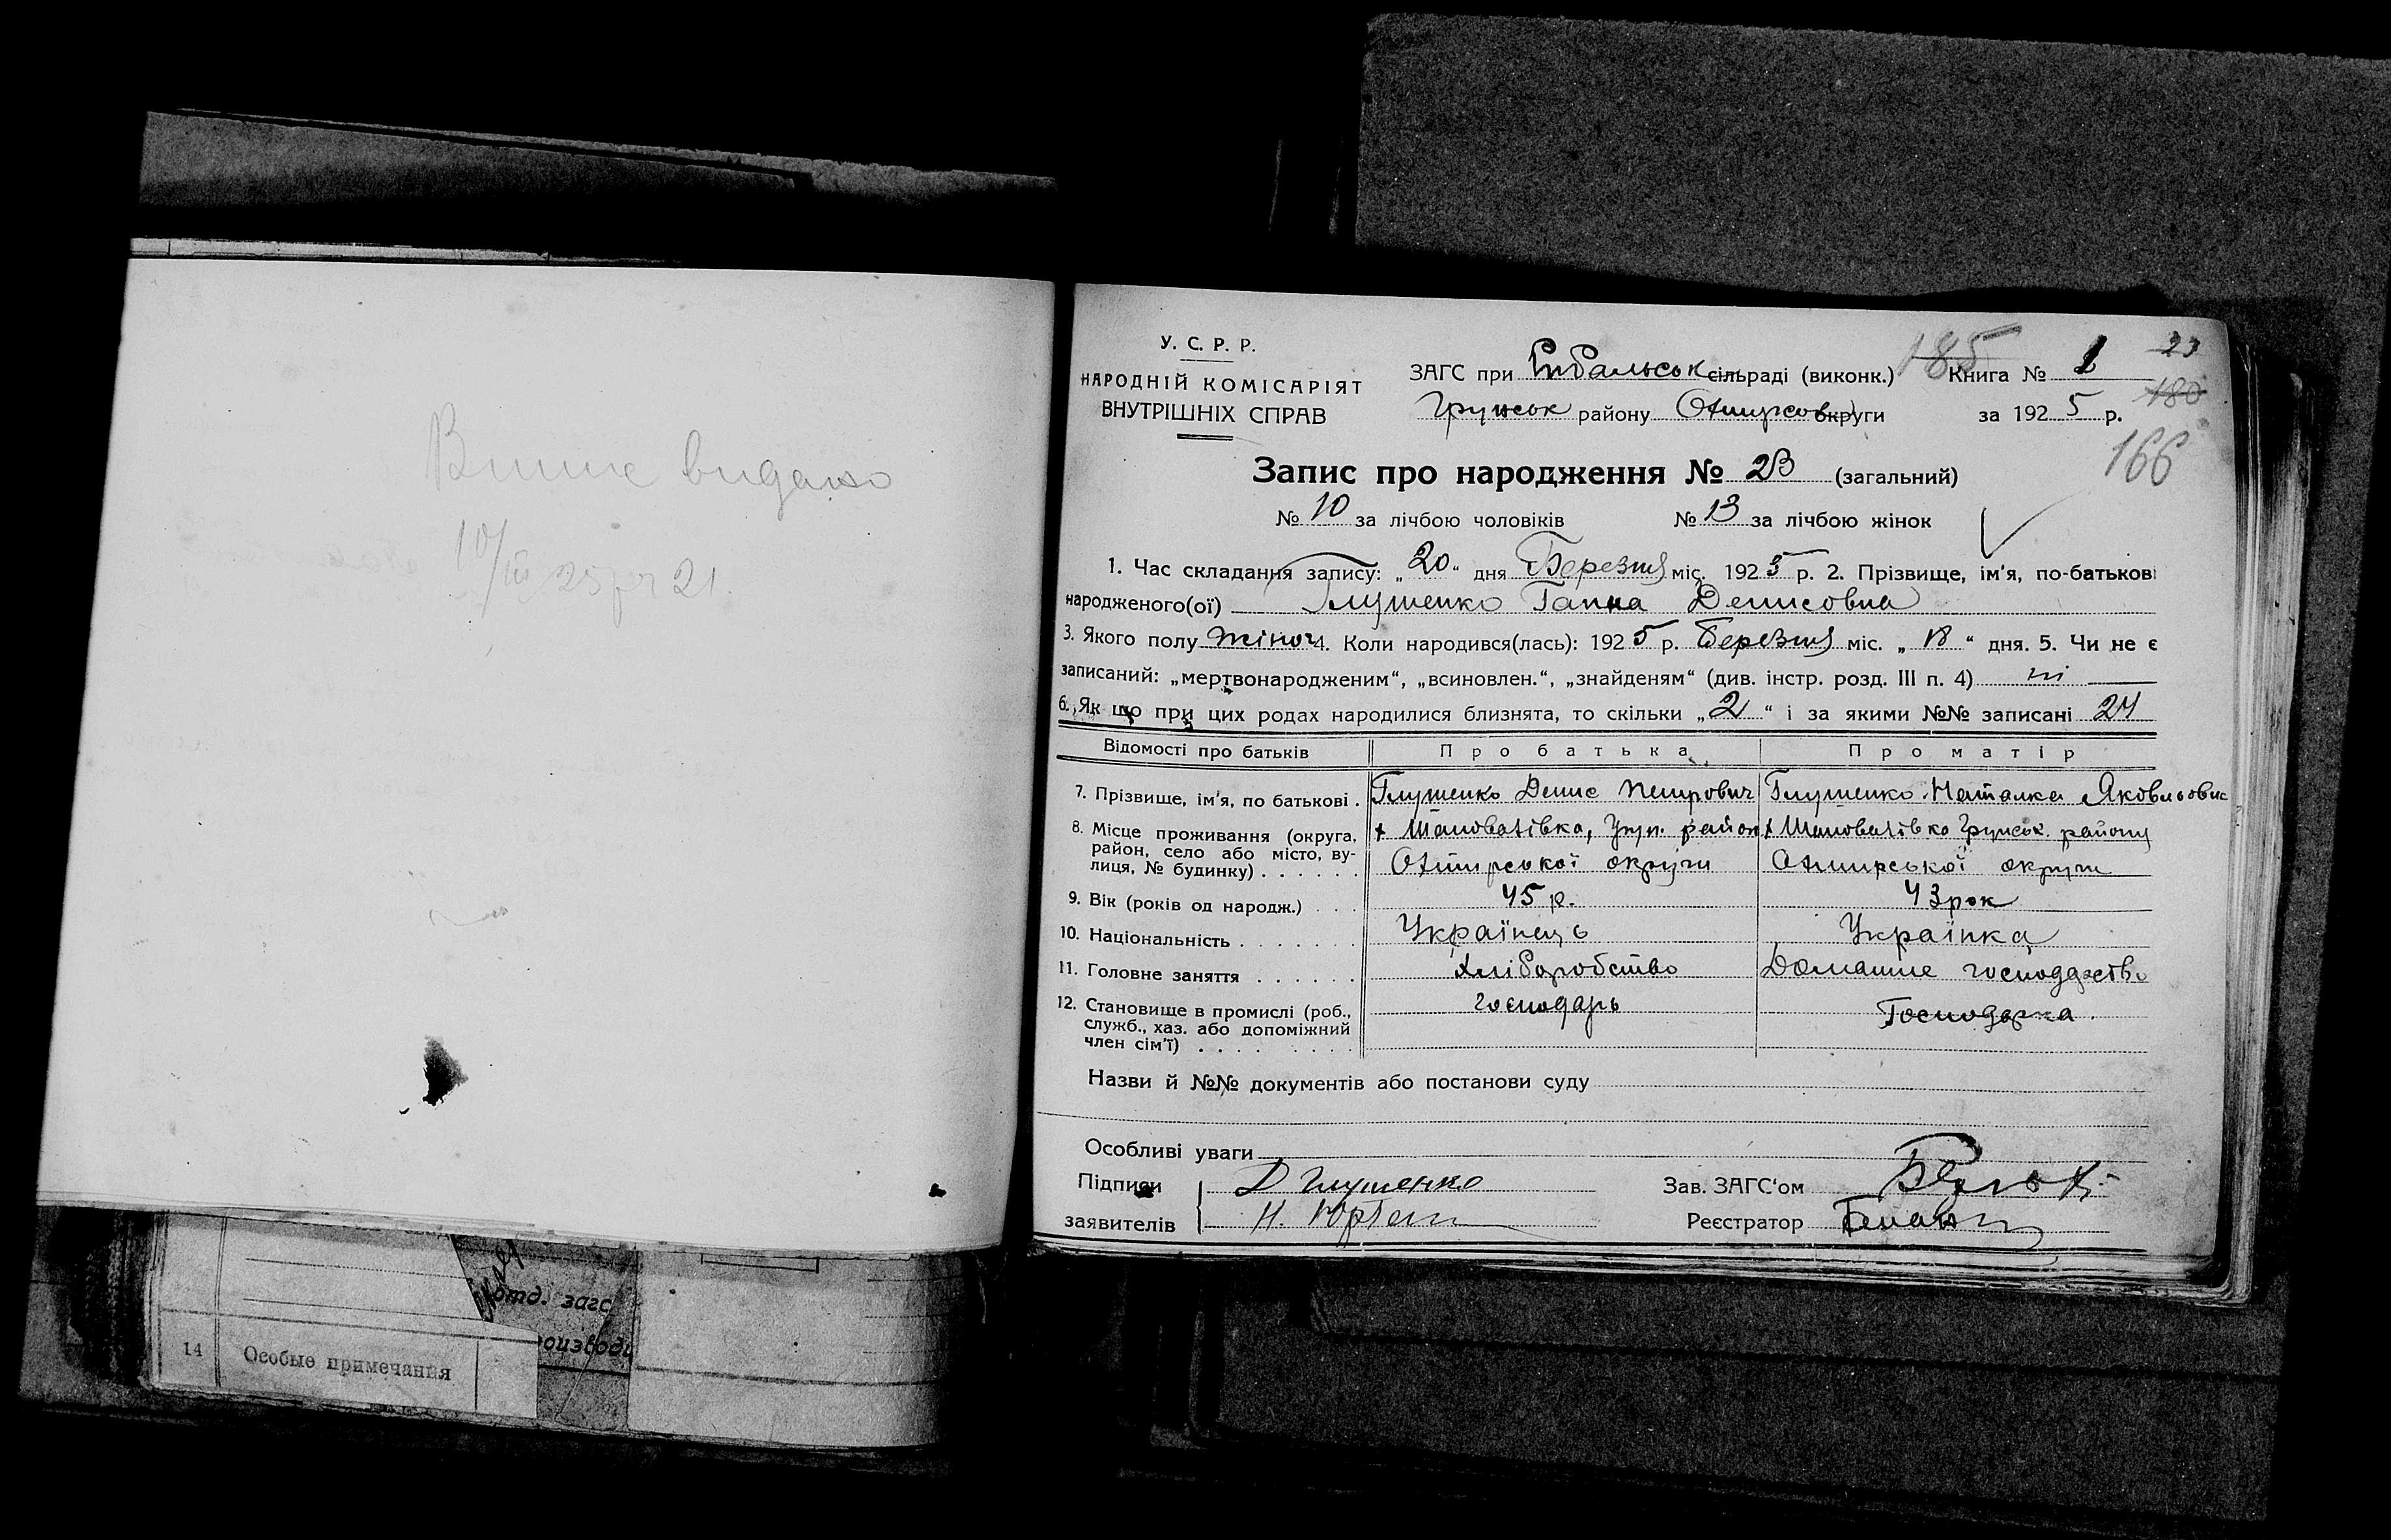 Випис видано
10/III 25 р № 21.
отд. загс
14 Особые примечания
У. С. Р. Р.
НАРОДНІЙ КОМІСАРІЯТ
ВНУТРІШНІХ СПРАВ
185
23
ЗАГС при Рибальськ сільраді (виконк.) Книга № 1
180
Грунськ району Охтирськ округи за 1925 р.
166
Запис про народження № 23 (загальний)
№ 10 за лічбою чоловіків № 13 за лічбою жінок
1. Час складання запису: „20“ дня Березня міс. 1925 р. 2. Прізвище, ім'я, по-батькові
народженого(ої) Глушенко Ганна Денисовна
3. Якого полу жіноч 4. Коли народився(лась): 1925 р. Березня міс. „18“ дня. 5. Чи не є
записаний: „мертвонародженим“, „всиновлен.“, „знайденям“ (див. інстр. розд. III п. 4) ні
6. Як що при цих родах народилися близнята, то скільки „2“ і за якими №№ записані 24
Відомості про батьків Про батька Про матір
7. Прізвище, ім'я, по батькові . Глушенко Денис Петрович Глушенко Наталка Яковльовна
8. Місце проживання (округа, х Шаповалівка, Грун. район х Шаповалівка Грунськ. району
район, село або місто, ву-
лиця, № будинку) . . . . . . Охтирської округи Охтирської округи
9. Вік (років од народж.) . . . 45 р. 43 рок
10. Національність . . . . . . . Українець Українка
11. Головне заняття . . . . . . Хліборобство Домашне господарство
12. Становище в промислі (роб., господарь Господарка.
служб., хаз. або допоміжний
член сім'ї) . . . . . . . .
Назви й №№ документів або постанови суду
Особливі уваги
Підписи Д Глушенко Зав. ЗАГС‘ом
заявителів Н. Реєстратор